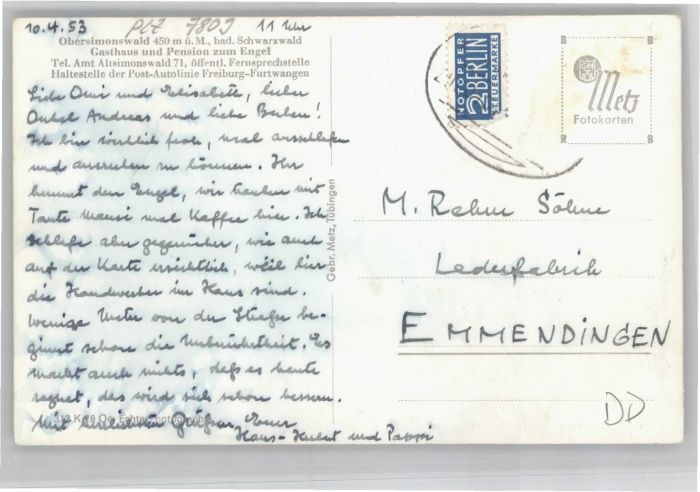 10.4.53 PLZ 7809 11 Uhr
Obersimonswald 450 m ü. M., bad. Schwarzwald
Gasthaus und Pension zum Engel
Tel. Amt Altsimonswald 71, öffentl. Fernsprechstelle
Haltestelle der Post-Autolinie Freiburg-Furtwangen
Liebe Omi und Elisabeth, lieber
Onkel Andreas und liebe
Ich bin wirklich froh, mal ausschlafen
und ausruhen zu können. Ihr
kennt den Engel, wir tranken mit
Tante Mausi mal Kaffee hier. Ich
schlafe aber gegenüber, wie auch
auf der Karte ersichtlich, weil hier
die Handwerker im Haus sind.
Wenige Meter von der Straße be-
ginnt schon die Unberührtheit. Es
macht auch nichts, daß es heute
regnet, das wird sich schon bessern.
Mit herzlichen Grüßen, Euer
Hans-Hubert und Pappi
Gebr. Metz, Tübingen
NOTOPFER
2 BERLIN
STEUERMARKE
B B
GM
Metz
Fotokarten
B B
M. Rehm Söhne
Lederfabrik
EMMENDINGEN
DD